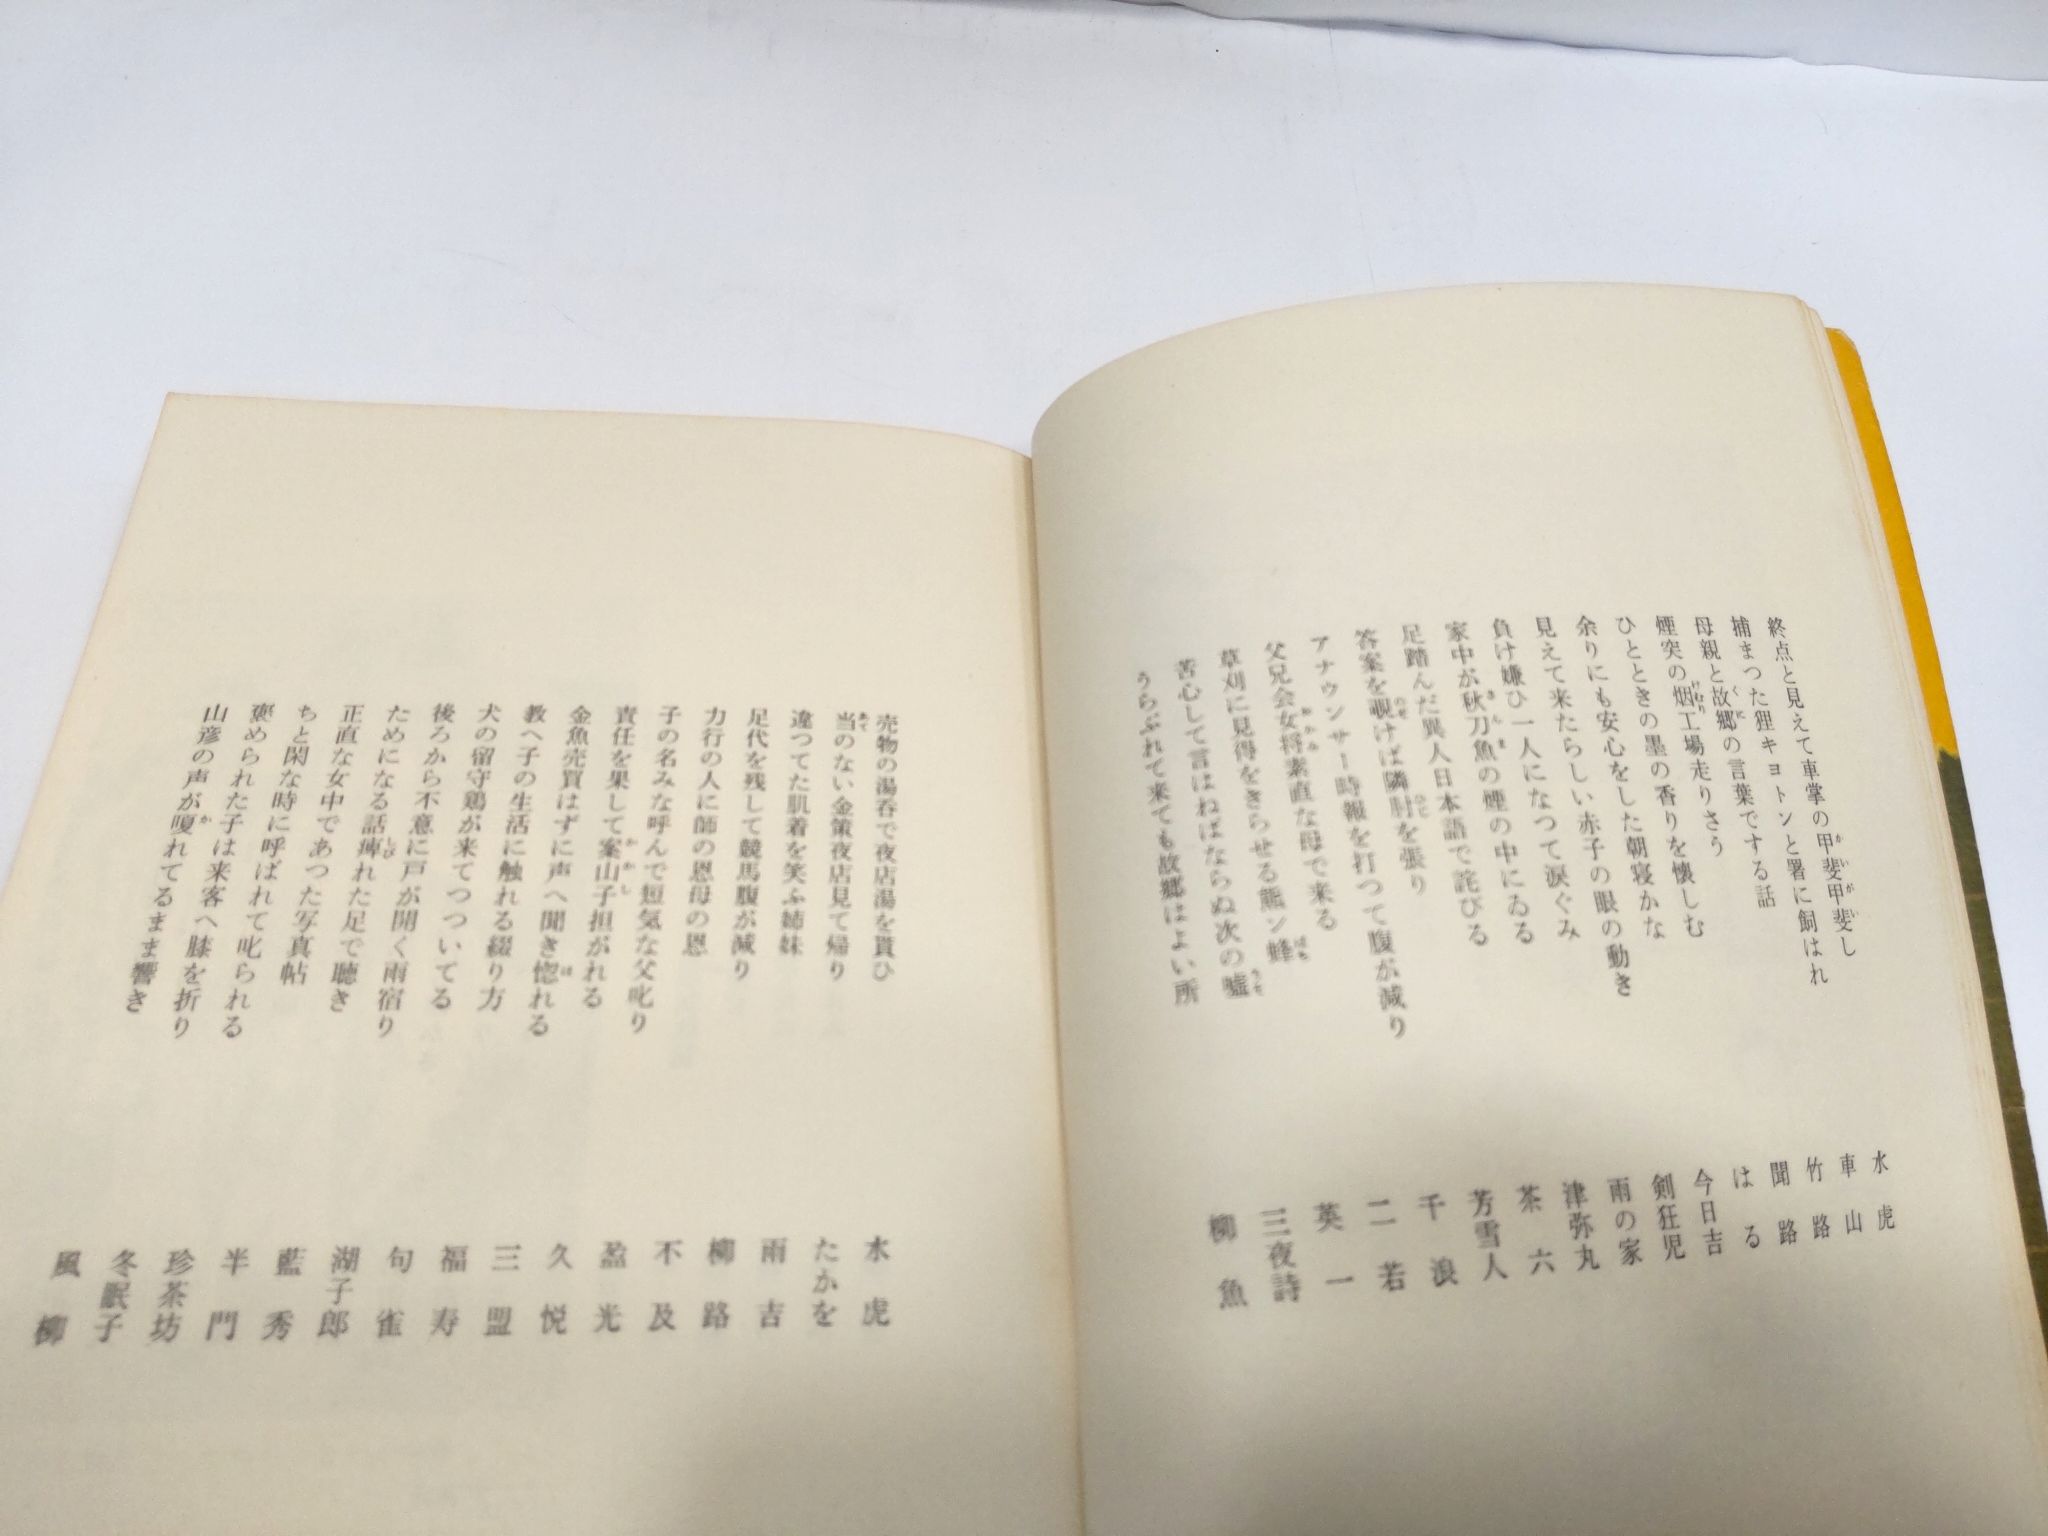 終点と見えて車掌の甲斐甲斐し 水虎
捕まつた狸キヨトンと署に飼はれ 車山
母親と故郷の言葉でする話 竹路
煙突の烟工場走りさう 聞路
ひとときの墨の香りを懐しむ はる
余りにも安心をした朝寝かな 今日吉
見えて来たらしい赤子の眼の動き 剣狂児
負け嫌ひ一人になつて涙ぐみ 雨の家
家中が秋刀魚の煙の中にゐる 津弥丸
足踏んだ異人日本語で詫びる 茶六
答案を覗けば隣肘を張り 芳雪人
アナウンサー時報を打つて腹が減り 千浪
父兄会女将素直な母で来る 二若
草刈に見得をきらせる熊ン蜂 英一
苦心して言はねばならぬ次の嘘 三夜詩
うらぶれて来ても故郷はよい所 柳魚
売物の湯呑で夜店湯を貰ひ 水虎
当のない金策夜店見て帰り たかを
違つてた肌着を笑ふ姉妹 雨吉
足代を残して競馬腹が減り 柳路
力行の人に師の恩母の恩 不及
子の名みな呼んで短気な父叱り 盈光
責任を果して案山子担がれる 久悦
金魚売買はずに声へ聞き惚れる 三盟
教へ子の生活に触れる綴り方 福寿
犬の留守鶏が来てつついてる 句雀
後ろから不意に戸が開く雨宿り 湖子郎
ためになる話痺れた足で聴き 藍秀
正直な女中であつた写真帖 半門
ちと閑な時に呼ばれて叱られる 珍茶坊
褒められた子は来客へ膝を折り 冬眠子
山彦の声が嗄れてるまま響き 風柳